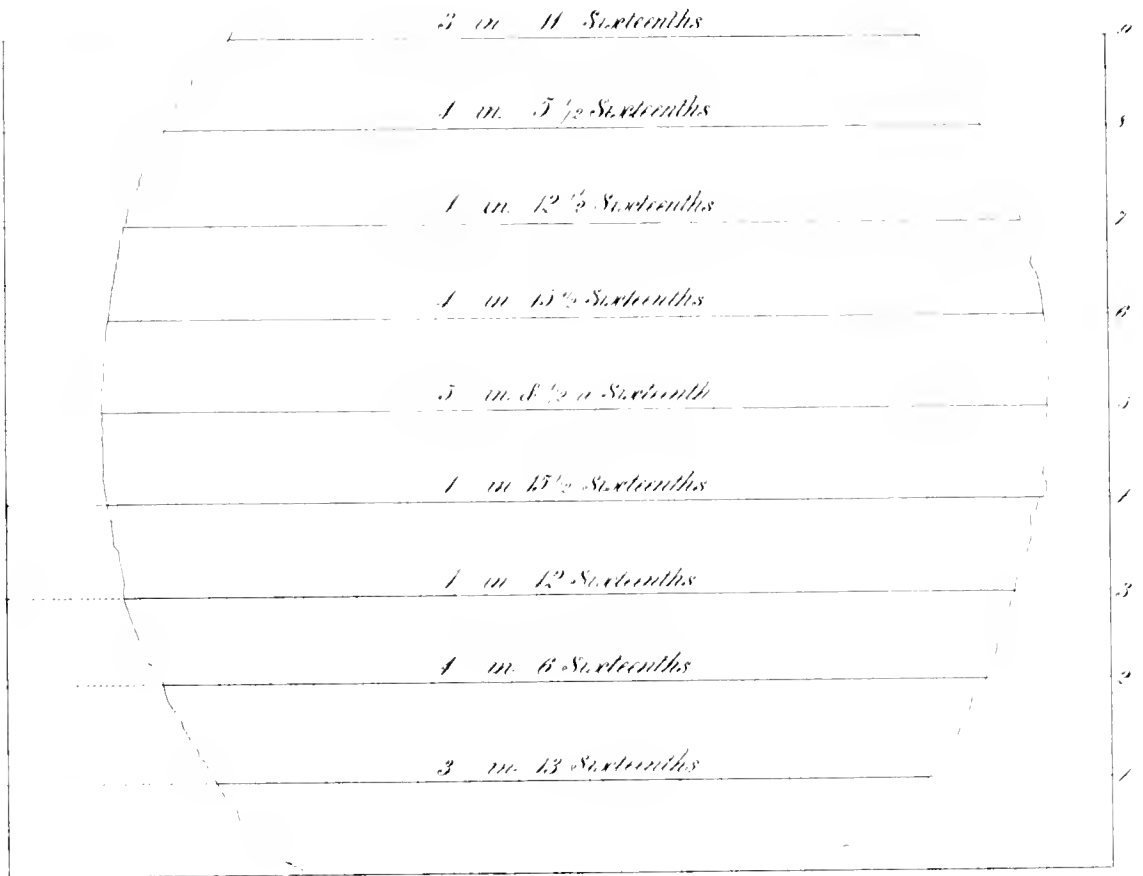 3 in 11 Sixteenths
4 in. 5 1/2 Sixteenths
8
4 in. 12 1/2 Sixteenths
7
4 in 15 1/2 Sixteenths
6
5 in. & 1/2 a Sixteenth
5
4 in 15 1/2 Sixteenths
4
4 in 12 Sixteenths
3
4 in. 6 Sixteenths
2
3 in. 13 Sixteenths
1